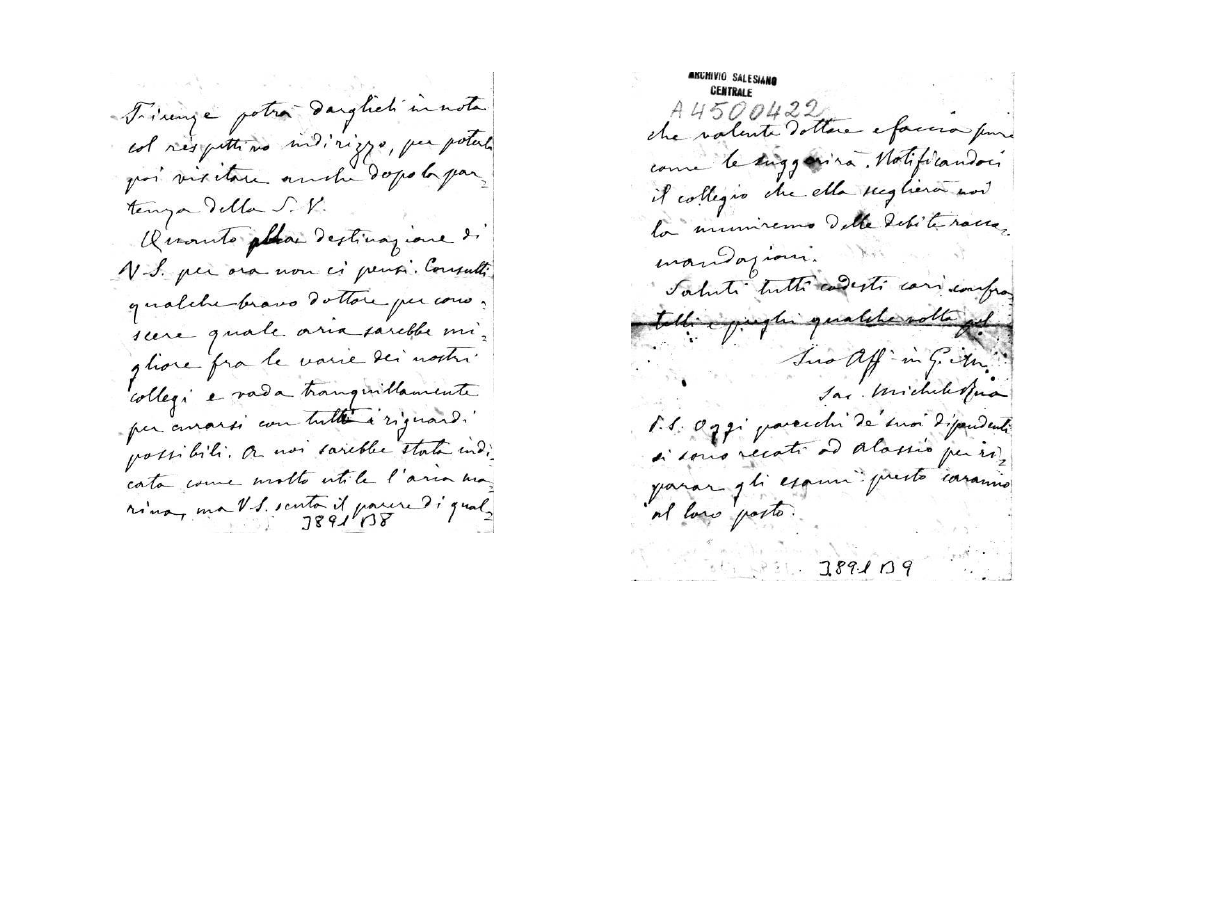 Firenze potrà darglieli in nota
col rispettivo indirizzo, per poterli
poi visitare anche dopo la par-
tenza della S. V.
Quanto alla destinazione di
V. S. per ora non ci pensi. Consulti
qualche bravo dottore per cono-
scere quale aria sarebbe mi-
gliore fra le varie dei nostri
collegi e vada tranquillamente
per curarsi con tutti i riguardi
possibili. A noi sarebbe stata indi-
cata come molto utile l'aria ma-
rina, ma V. S. senta il parere di qual-
3891 B8
ARCHIVIO SALESIANO
CENTRALE
A4500422
che valente dottore e faccia pure
come le suggerirà. Notificandoci
il collegio che ella sceglierà noi
la muniremo delle debite racco-
mandazioni.
Saluti tutti codesti cari confra-
telli e preghi qualche volta pel
Suo Aff in G. e M.
Sac. Michele Rua
P. S. Oggi parecchi de' suoi dipendenti
si sono recati ad Alassio per ri-
parar gli esami: presto saranno
al loro posto.
3891 B9